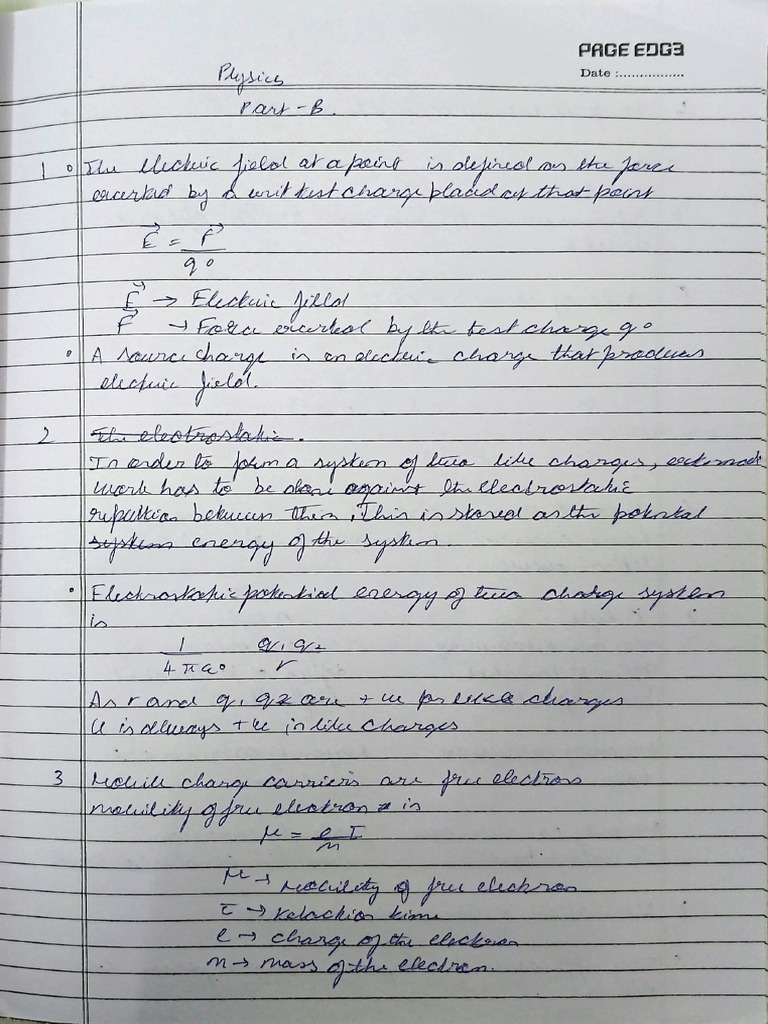 PAGE EDG3
Date :................
Physics
Part - B.
1 ° The electric field at a point is defined as the force
excerted by a unit test charge placed at that point
E⃗ = F⃗ / q°
E⃗ → Electric field
F⃗ → Force excerted by the test charge q°
° A source charge is an electric charge that produces
electric field.
2 The electrostatic.
In order to form a system of two like charges, external
work has to be done against the electrostatic
repultion between them. This is stored as the potential
system energy of the system.
• Electrostatic potential energy of two charge system
is
1 / 4πε° q1 q2 / r
As r and q1 q2 are + ve for like charges
U is always + ve in like charges
3 Mobile charge carriers are free electrons
mobility of free electron is
μ = e τ / m
μ → mobility of free electron
τ → relaction time
e → charge of the electron
m → mass of the electron.